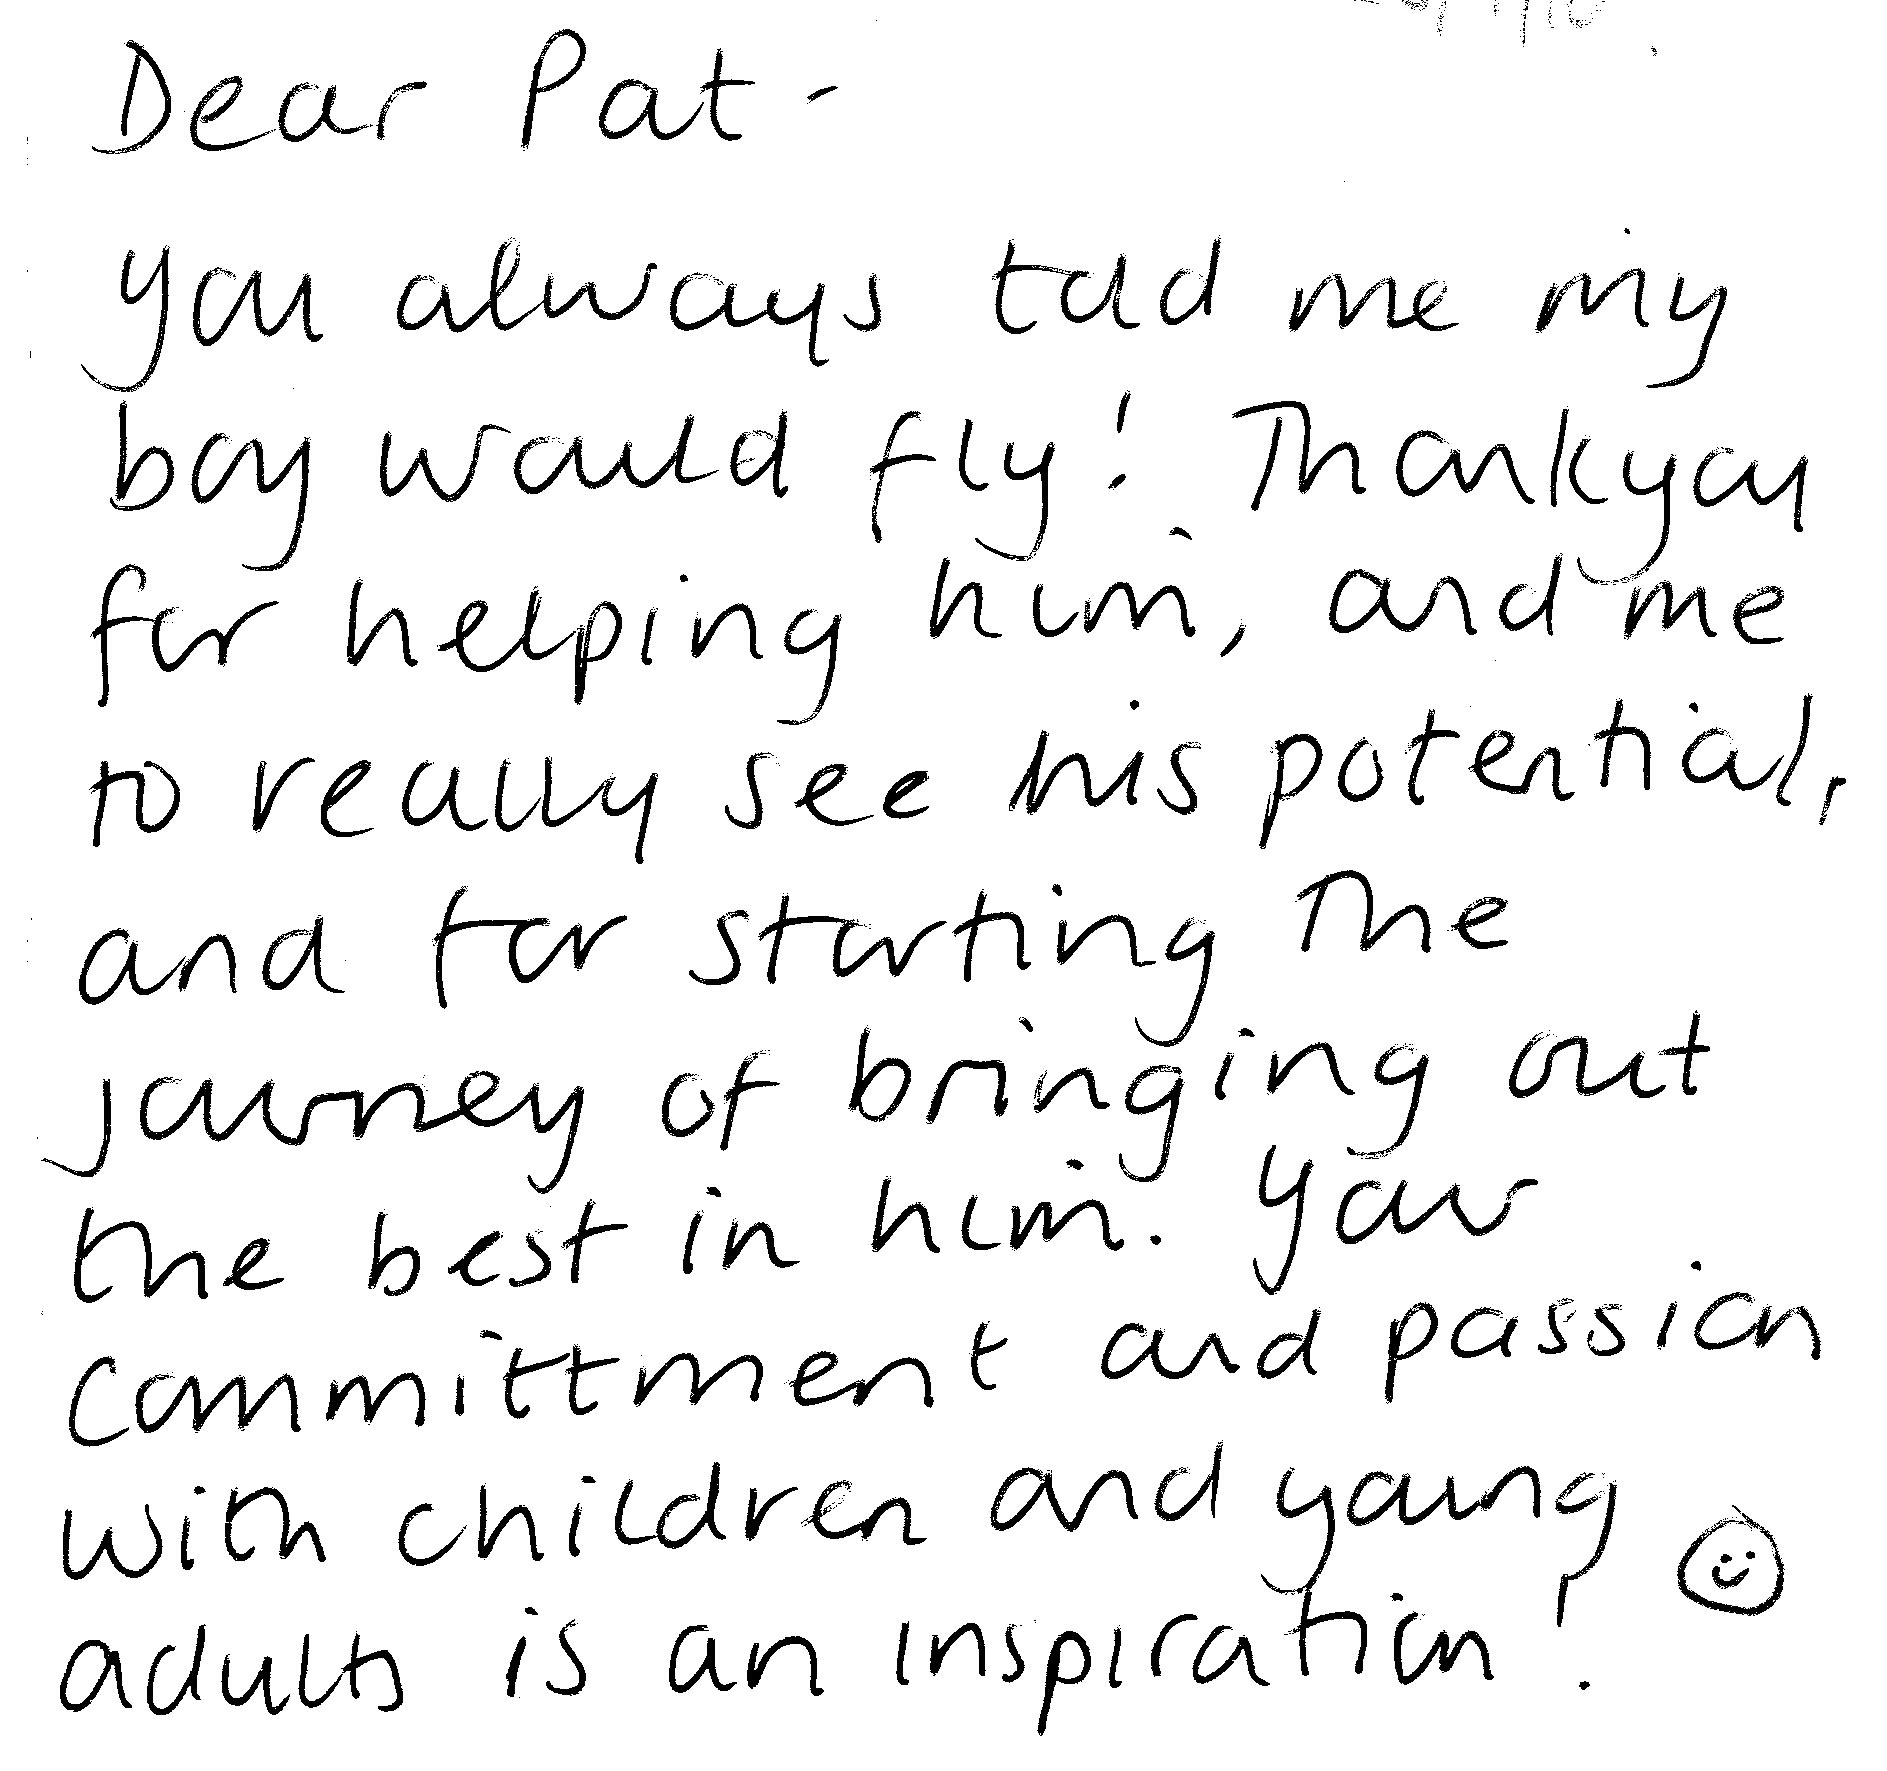 Dear Pat -
You always told me my
boy would fly! Thankyou
for helping him, and me
to really see his potential,
and for starting the
journey of bringing out
the best in him. Your
committment and passion
with children and young
adults is an inspiration!